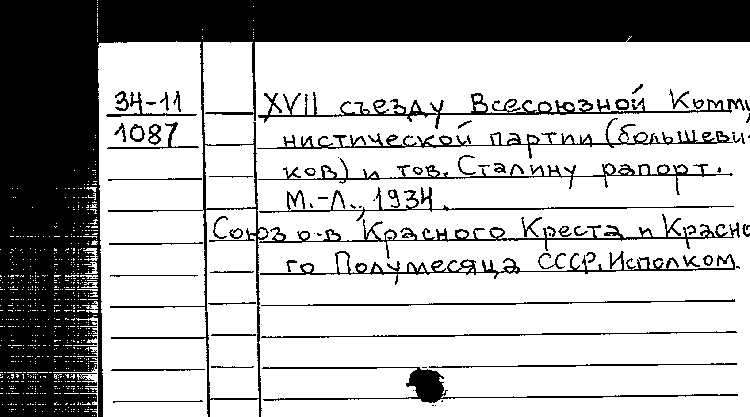 34-11 XVII съезду Всесоюзной Комму
1087 нистической партии (большеви-
ков) и тов. Сталину рапорт.
М.-Л., 1934.
Союз о-в Красного Креста и Красно
го Полумесяца СССР. Исполком.